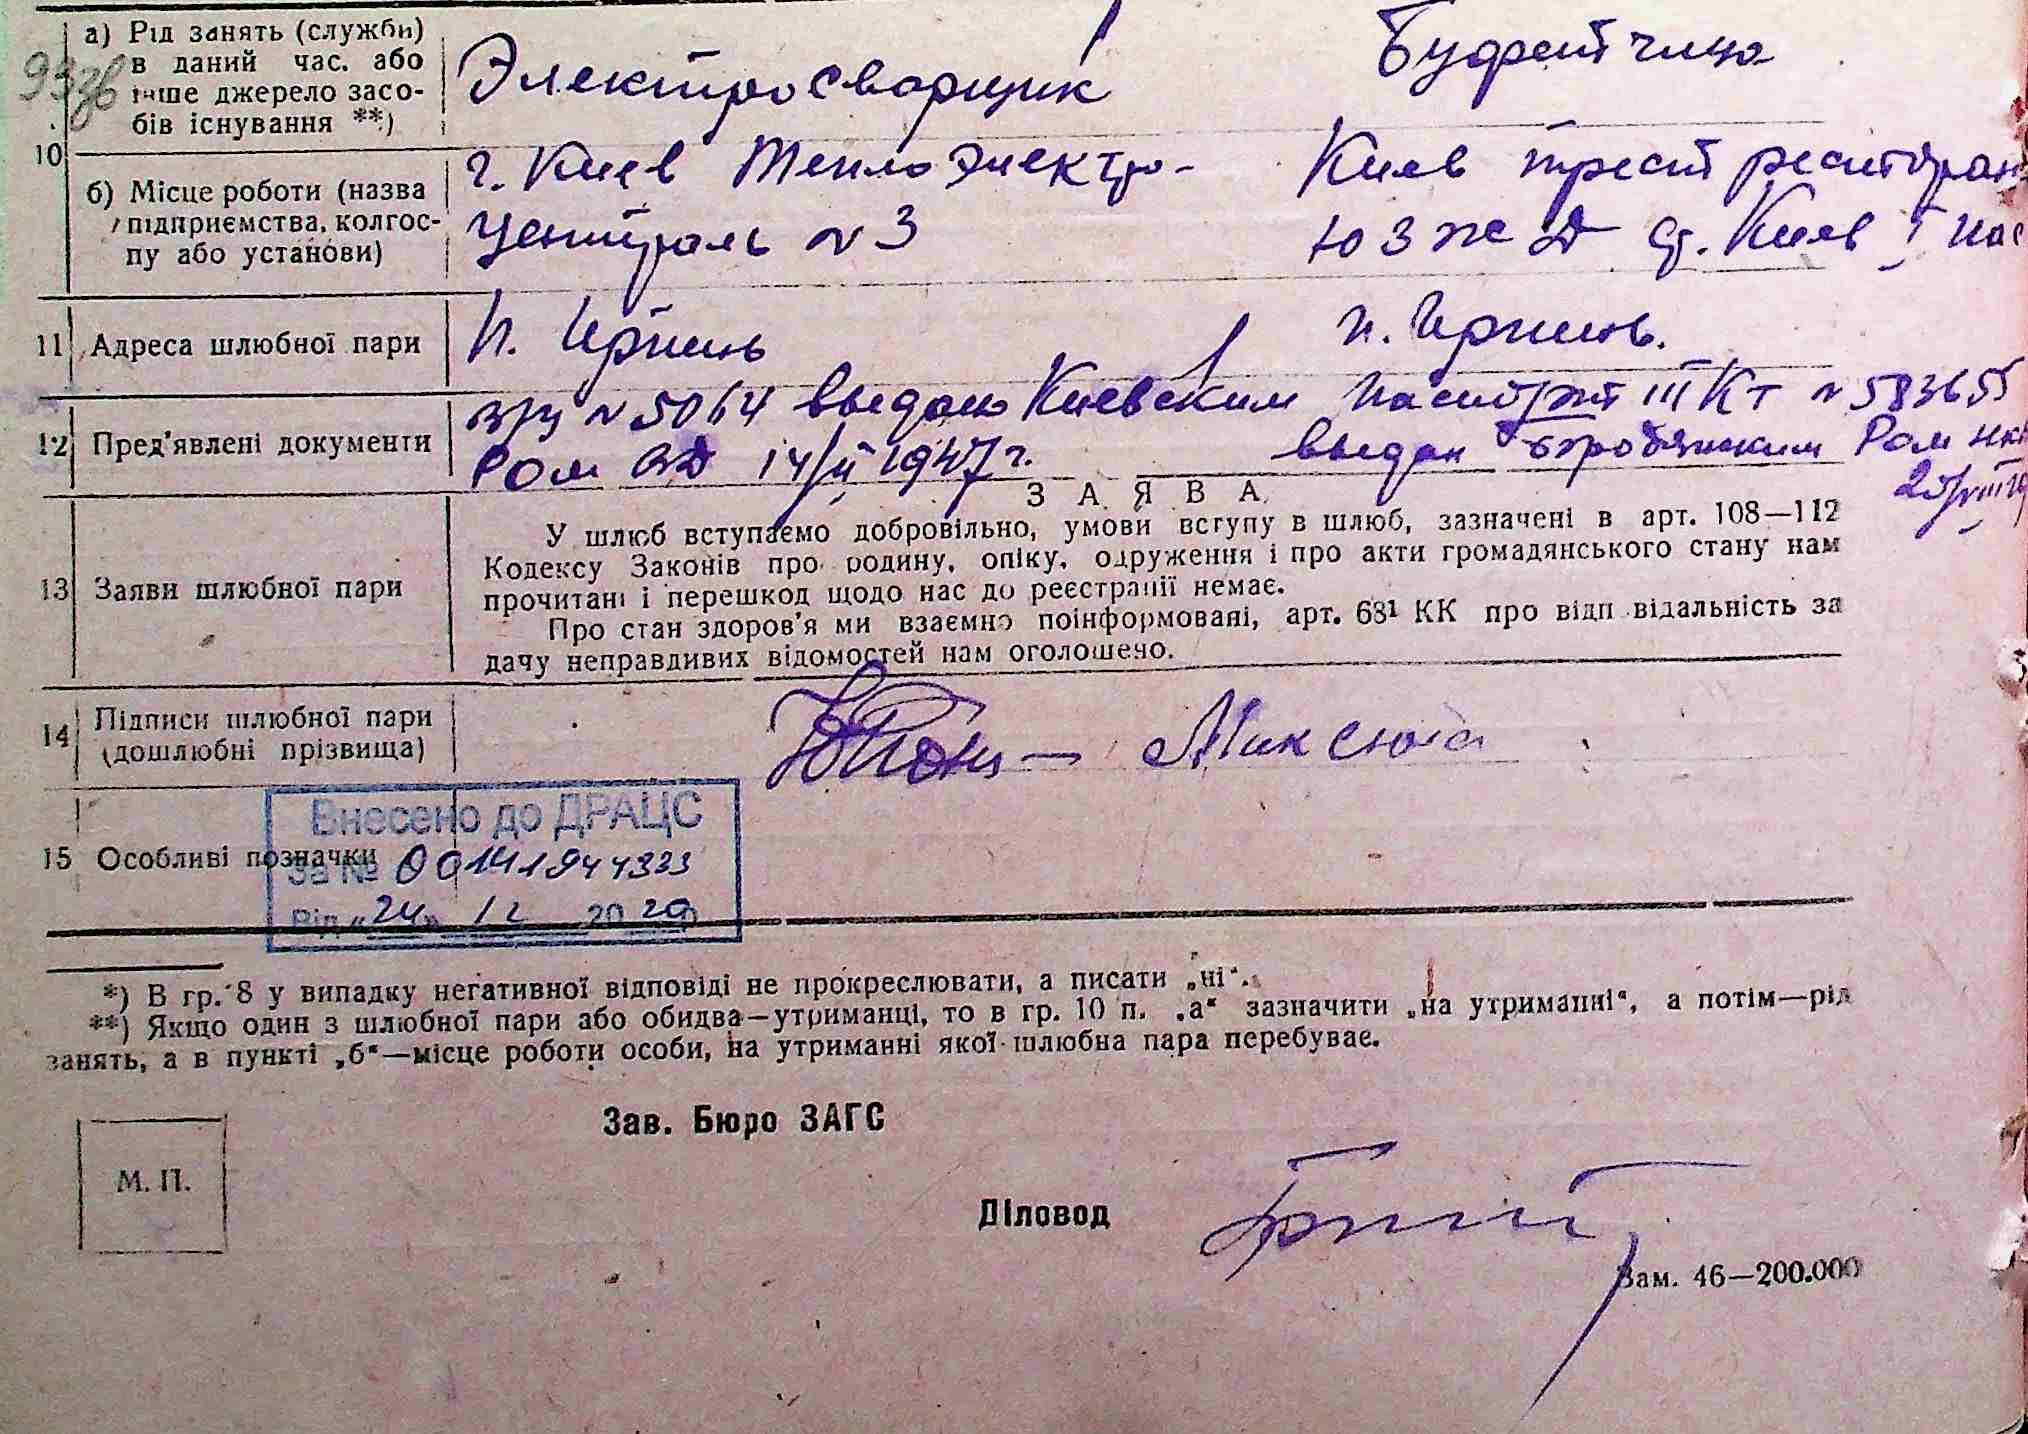 а) Рід занять (служби)
в даний час. або
інше джерело засо-
бів існування **)
Электросварщик
Буфетчица
10
б) Місце роботи (назва
підприємства, колгос-
пу або установи)
г. Киев Теплоэлектро-
Централь N 3
Киев трест ресторан
ЮЗЖД ст. Киев I пас
11 Адреса шлюбної пари
п. Ирпень
п. Ирпень.
12 Пред'явлені документи
N 5064 выдано Киевским
РОМ 14/II 1947 г.
паспорт III КТ N 583655
выдан Бородянским РОМ НК
25/VIII
З А Я В А
13 Заяви шлюбної пари
У шлюб вступаємо добровільно, умови вступу в шлюб, зазначені в арт. 108—112
Кодексу Законів про родину, опіку, одруження і про акти громадянського стану нам
прочитані і перешкод щодо нас до реєстрації немає.
Про стан здоров'я ми взаємно поінформовані, арт. 68¹ КК про відп відальність за
дачу неправдивих відомостей нам оголошено.
14 Підписи шлюбної пари
(дошлюбні прізвища)
Максюта
15 Особливі позначки
Внесено до ДРАЦС
За № 00141944333
Від „24" 12 2020
*) В гр. 8 у випадку негативної відповіді не прокреслювати, а писати „ні".
**) Якщо один з шлюбної пари або обидва—утриманці, то в гр. 10 п. „а" зазначити „на утриманні", а потім—рід
занять, а в пункті „б"—місце роботи особи, на утриманні якої шлюбна пара перебуває.
Зав. Бюро ЗАГС
М. П.
Діловод
Зам. 46—200.000